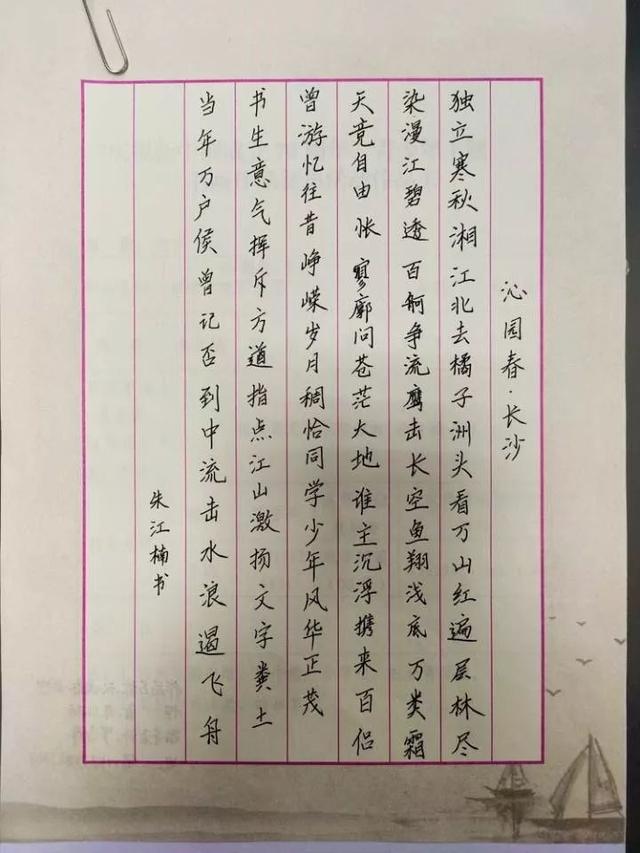 沁园春·长沙
独立寒秋湘江北去橘子洲头看万山红遍层林尽
染漫江碧透百舸争流鹰击长空鱼翔浅底万类霜
天竞自由怅寥廓问苍茫大地谁主沉浮携来百侣
曾游忆往昔峥嵘岁月稠恰同学少年风华正茂
书生意气挥斥方遒指点江山激扬文字粪土
当年万户侯曾记否到中流击水浪遏飞舟
朱江楠书